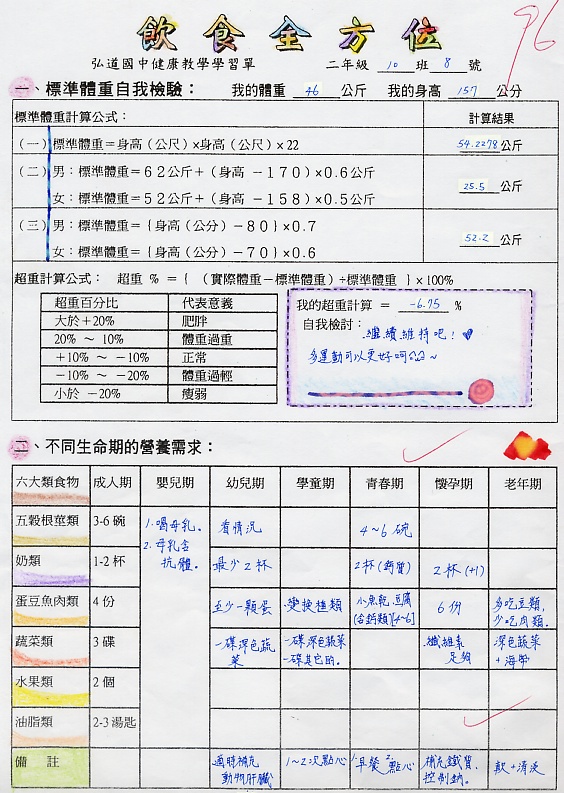 飲食全方位
96
弘道國中健康教學學習單 二年級 10 班 8 號
一、標準體重自我檢驗： 我的體重 46 公斤 我的身高 157 公分
標準體重計算公式： 計算結果
(一) 標準體重＝身高（公尺）×身高（公尺）×22 54.2278 公斤
(二) 男：標準體重＝62公斤＋（身高 －170）×0.6公斤
25.5 公斤
女：標準體重＝52公斤＋（身高 －158）×0.5公斤
(三) 男：標準體重＝｛身高（公分）－80｝×0.7
52.2 公斤
女：標準體重＝｛身高（公分）－70｝×0.6
超重計算公式： 超重 %＝｛ （實際體重－標準體重）÷標準體重 ｝×100%
超重百分比 代表意義
大於＋20% 肥胖
20% ～ 10% 體重過重
＋10% ～ －10% 正常
－10% ～ －20% 體重過輕
小於 －20% 瘦弱
我的超重計算 ＝ -6.75 %
自我檢討：
繼續維持吧！
多運動可以更好呵 ~
二、不同生命期的營養需求：
六大類食物 成人期 嬰兒期 幼兒期 學童期 青春期 懷孕期 老年期
五穀根莖類 3-6 碗 1.喝母乳。 看情況 4~6 碗
2.母乳含抗體。
奶類 1-2 杯 最少2杯 2杯(鈣質) 2杯(+1)
蛋豆魚肉類 4 份 至少一顆蛋 變換種類 小魚乾、豆腐(含鈣類)[4~6] 6份 多吃豆類，少吃肉類。
蔬菜類 3 碟 一碟深色蔬菜 一碟深色蔬菜 一碟其它的。 纖維素足夠 深色蔬菜＋海帶
水果類 2 個
油脂類 2-3 湯匙
備 註 適時補充動物肝臟 1~2次點心 1早餐 2點心 補充鐵質，控制鈉。 軟＋清淡